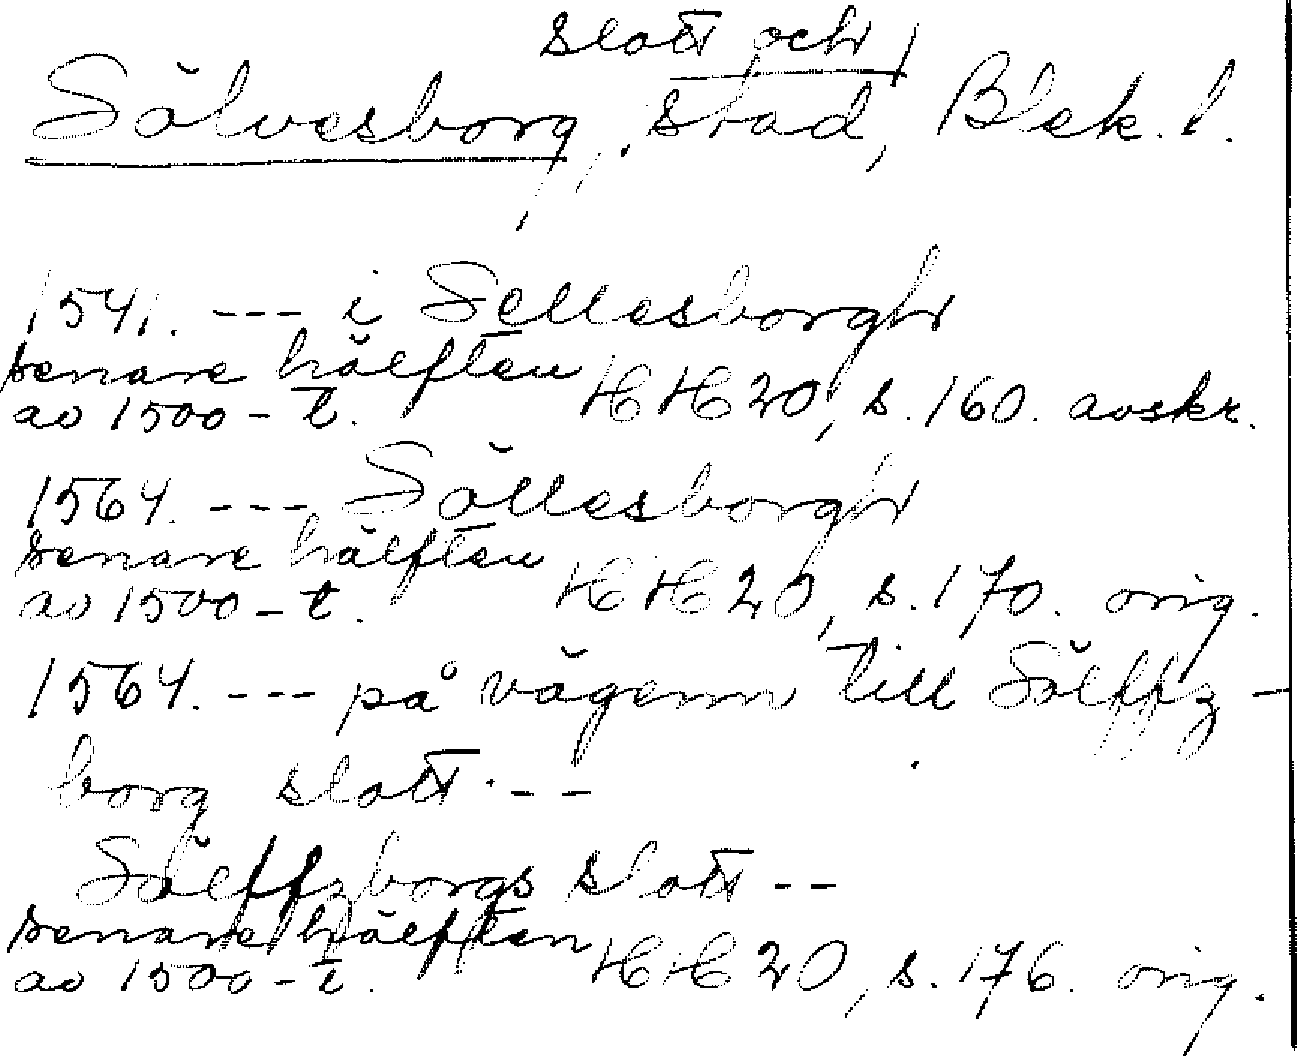 slott och
Sölvesborg, stad, Blek. l.
1541. --- i Sellesborgh
senare hälften
av 1500-t. HH 20, s. 160. avskr.
1564. --- Söllesborgh
senare hälften
av 1500-t. HH 20, s. 170. orig.
1564. --- på vägenn till Sölffz-
borg slott ---
Sölffzborgs slott --
senare hälften
av 1500-t. HH 20, s. 176. orig.